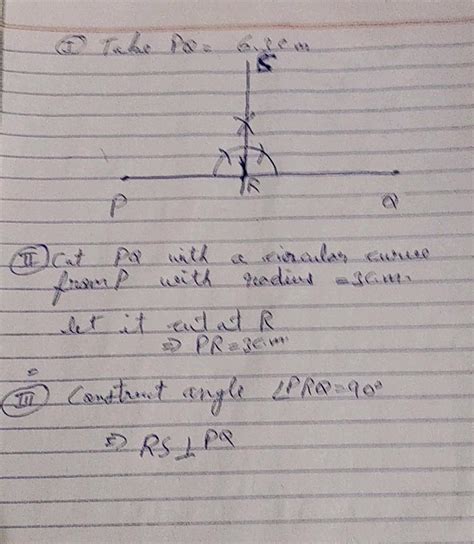 (I) Take PQ = 6.3cm
S
R
P
Q
(II) Cut PQ with a circular curve
from P with radius = 3cm.
let it cut at R
⇒ PR = 3cm
=
(III) Construct angle ∠PRQ = 90°
⇒ RS ⊥ PQ